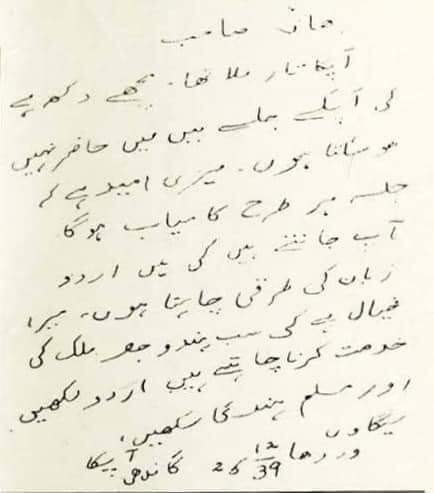 بھائی صاحب
آپکا تار ملا تھا۔ مجھے دکھ ہے
کی آپکے جلسے میں میں حاضر نہیں
ہو سکتا ہوں۔ میری امید ہے کہ
جلسہ ہر طرح کامیاب ہوگا
آپ جانتے ہیں کی میں اردو
زبان کی طرقی چاہتا ہوں۔ میرا
خیال ہے کی سب ہندو جو ملک کی
خدمت کرنا چاہتے ہیں اردو سکھیں
اور مسلم ہندی سکھیں،
سیگاوں آپکا
وردھا 26 12/39 گاندھی